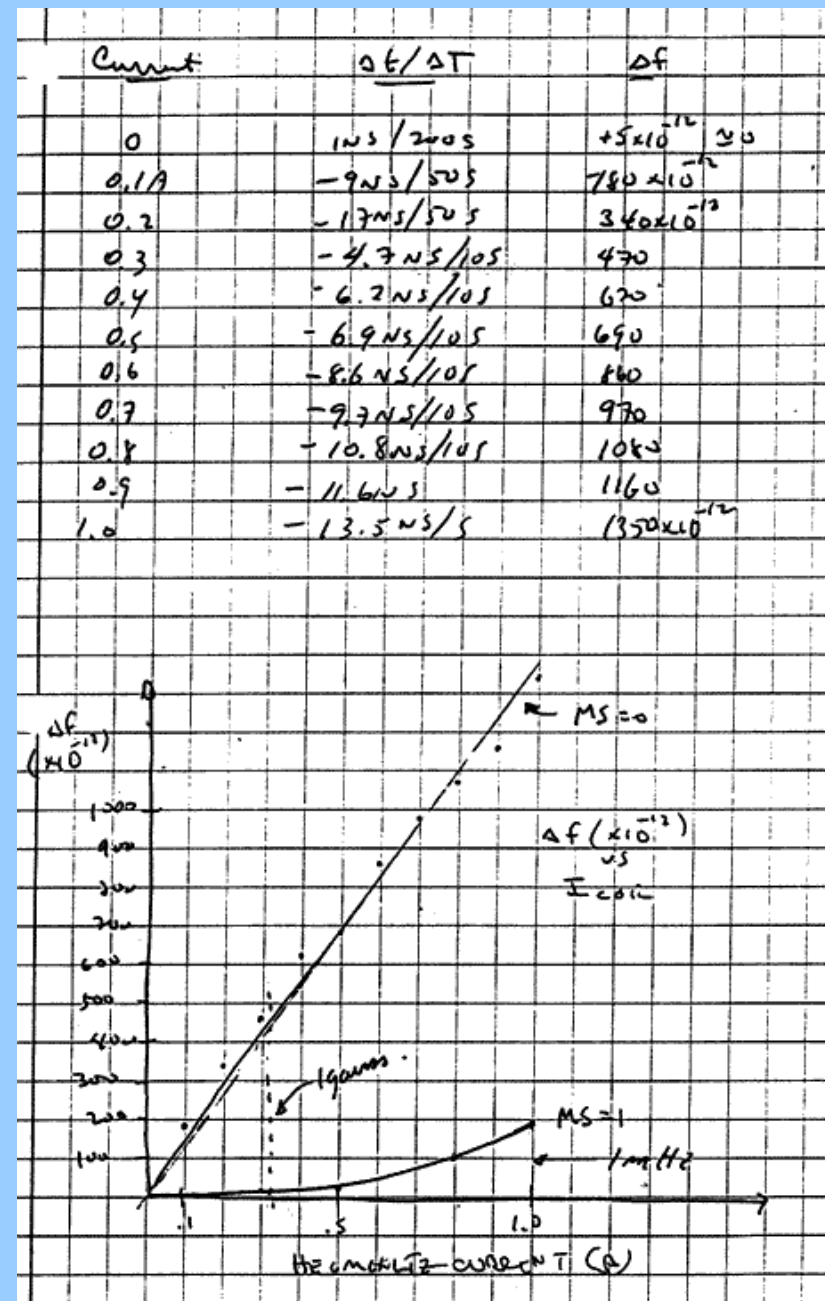 Current Δt/ΔT Δf
0 1NS/200S +5x10⁻¹² ≅0
0.1A -9NS/50S 180x10⁻¹²
0.2 -17NS/50S 340x10⁻¹²
0.3 -4.7NS/10S 470
0.4 -6.2NS/10S 620
0.5 -6.9NS/10S 690
0.6 -8.6NS/10S 860
0.7 -9.7NS/10S 970
0.8 -10.8NS/10S 1080
0.9 -11.6NS 1160
1.0 -13.5NS/S 1350x10⁻¹²
MS=0
Δf
(x10⁻¹²)
1000
900
800
700
600
500
400
300
200
100
Δf (x10⁻¹²)
vs
I coil
1 gauss.
MS=1
1mHz
.1 .5 1.0
HELMHOLTZ CURRENT (A)